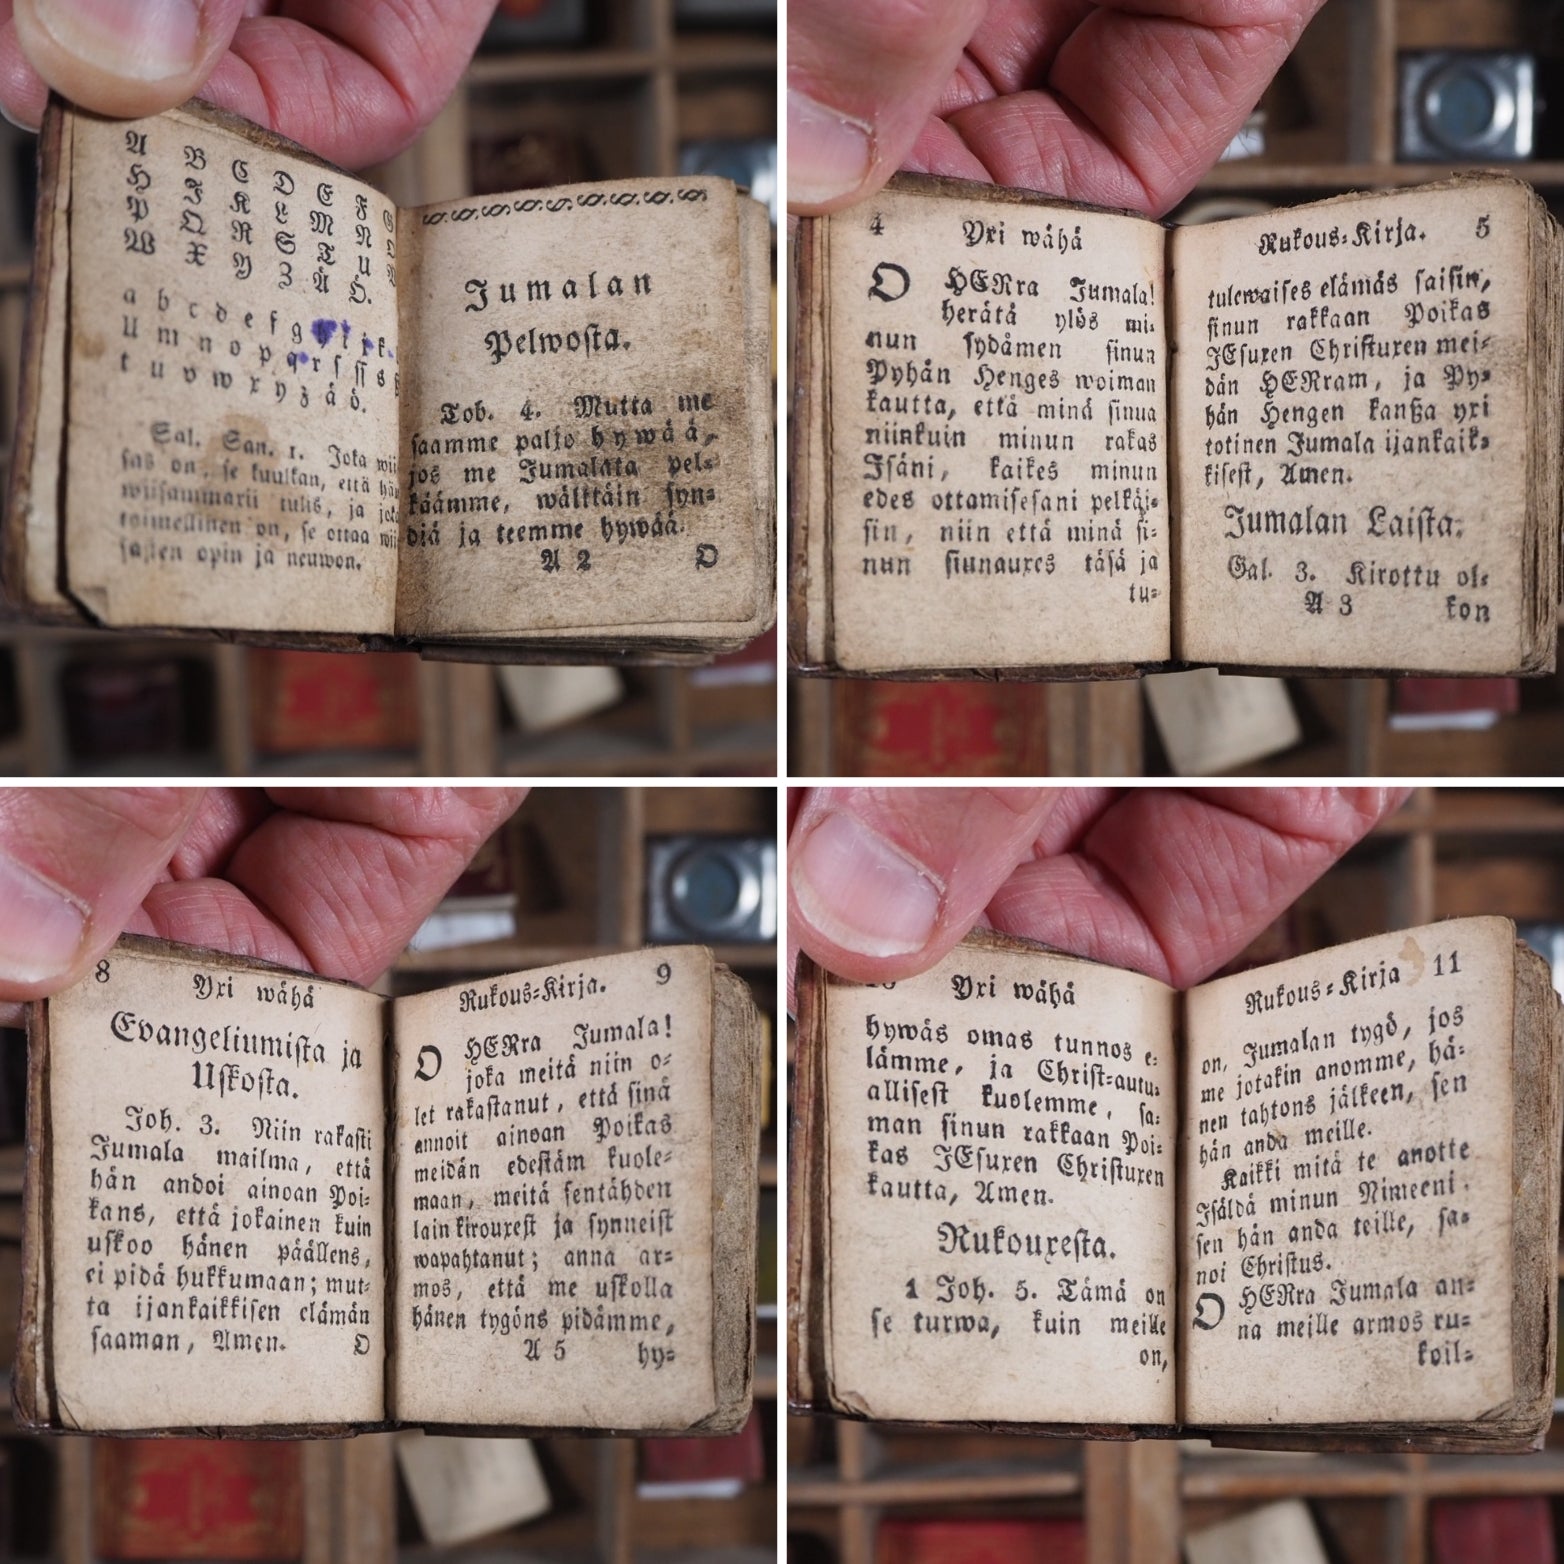 A B C D E F G
H I K L M N
P Q R S T U
W X Y Z Å Ö.
a b c d e f g h i j k
ll m n o p q r ſ ſſ s ß
t u v w x y z å ö.
Sal. San. 1. Joka wii-
ſas on, ſe kuulkan, että hän
wiiſammaxi tulis, ja joka
toimellinen on, ſe ottaa wii-
ſaſten opin ja neuwon.
Jumalan
Pelwoſta.
Tob. 4. Mutta me
ſaamme paljo hywää,
jos me Jumalata pel-
käämme, wälttäin ſyn-
diä ja teemme hywää.
A 2 O
4 Yxi wähä
O HERra Jumala!
herätä ylös mi-
nun ſydämen ſinun
Pyhän Henges woiman
kautta, että minä ſinua
niinkuin minun rakas
Iſäni, kaikes minun
edes ottamiſeſani pelkäi-
ſin, niin että minä ſi-
nun ſiunauxes täſä ja
tu-
Rukous-Kirja. 5
tulewaiſes elämäs ſaiſin,
ſinun rakkaan Poikas
JEſuxen Chriſtuxen mei-
dän HERram, ja Py-
hän Hengen kanßa yxi
totinen Jumala ijankaik-
kiſeſt, Amen.
Jumalan Laiſta.
Gal. 3. Kirottu ol-
A 3 kon
8 Yxi wähä
Evangeliumiſta ja
Uſkoſta.
Joh. 3. Niin rakaſti
Jumala mailma, että
hän andoi ainoan Poi-
kans, että jokainen kuin
uſkoo hänen päällens,
ei pidä hukkumaan; mut-
ta ijankaikkiſen elämän
ſaaman, Amen. O
Rukous-Kirja. 9
O HERra Jumala!
joka meitä niin o-
let rakaſtanut, että ſinä
annoit ainoan Poikas
meidän edeſtäm kuole-
maan, meitä ſentähden
lain kirouxeſt ja ſynneiſt
wapahtanut; anna ar-
mos, että me uſkolla
hänen tygöns pidämme,
A 5 hy-
10 Yxi wähä
hywäs omas tunnos e-
lämme, ja Chriſt-autu-
alliſeſt kuolemme, ſa-
man ſinun rakkaan Poi-
kas JEſuxen Chriſtuxen
kautta, Amen.
Rukouxeſta.
1 Joh. 5. Tämä on
ſe turwa, kuin meille
on,
Rukous-Kirja 11
on, Jumalan tygö, jos
me jotakin anomme, hä-
nen tahtons jälkeen, ſen
hän anda meille.
Kaikki mitä te anotte
Iſäldä minun Nimeeni,
ſen hän anda teille, ſa-
noi Chriſtus.
O HERra Jumala an-
na meille armos ru-
koil-